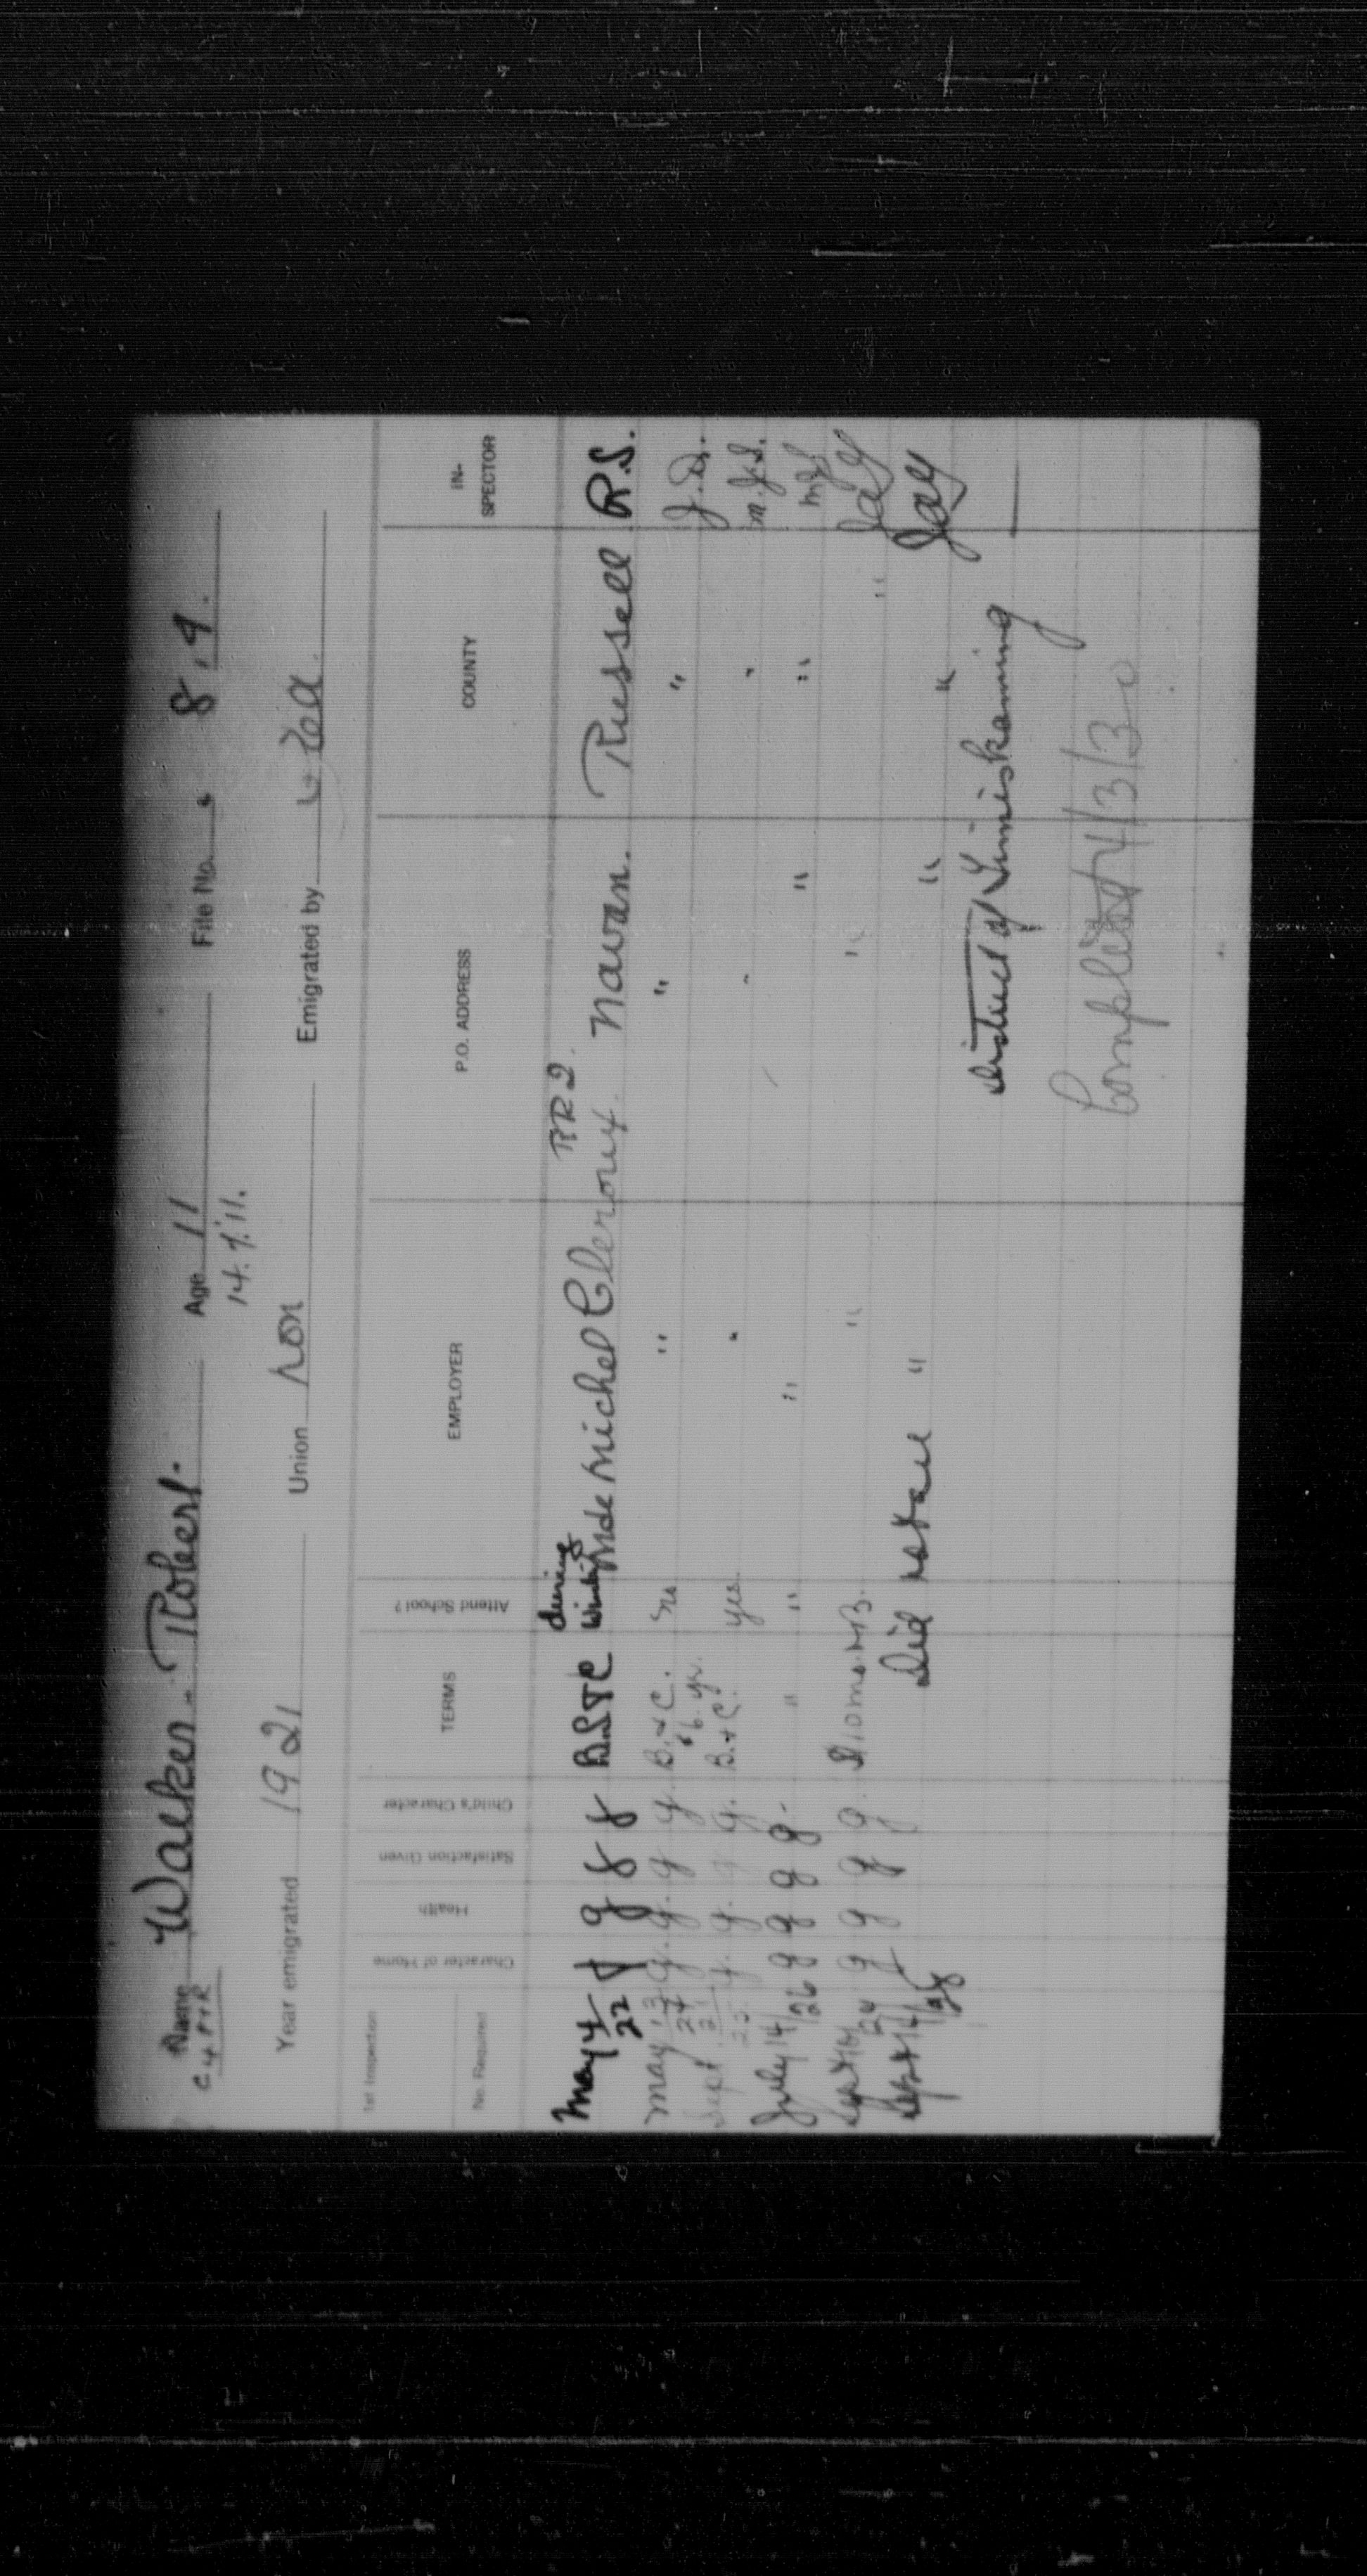 Name Walker - Robert. Age 11 File No. 8,9.
C 4 P+R 14.7.'11.
Year emigrated 1921 Union Non Emigrated by
1st Inspection
No. Required
Character of Home Health Satisfaction Given Child's Character TERMS Attend School? EMPLOYER P.O. ADDRESS COUNTY IN-SPECTOR
during RR2.
May 4/22 g g B.S+C Winter Mde Michel Cleroux. Navan. Russell R.S.
May 13/24 g. g. g g. B.+C. no " " " J.D.
Sept. 21/25 g. g. g. B.+C. $6. yr. yes. " " " M.J.S.
July 14/26 g g g g. " " " " "
Sept g g g g $10 mo. " " " Jay
Sept 14/28 Did not see " " " Jay
District of Timiskaming
Completed 4/3/30